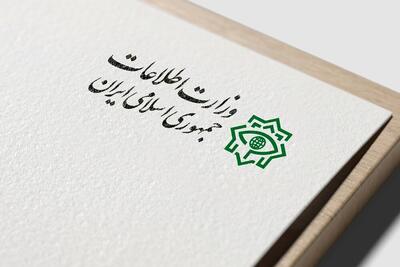 وزارت اطلاعات
جمهوری اسلامی ایران